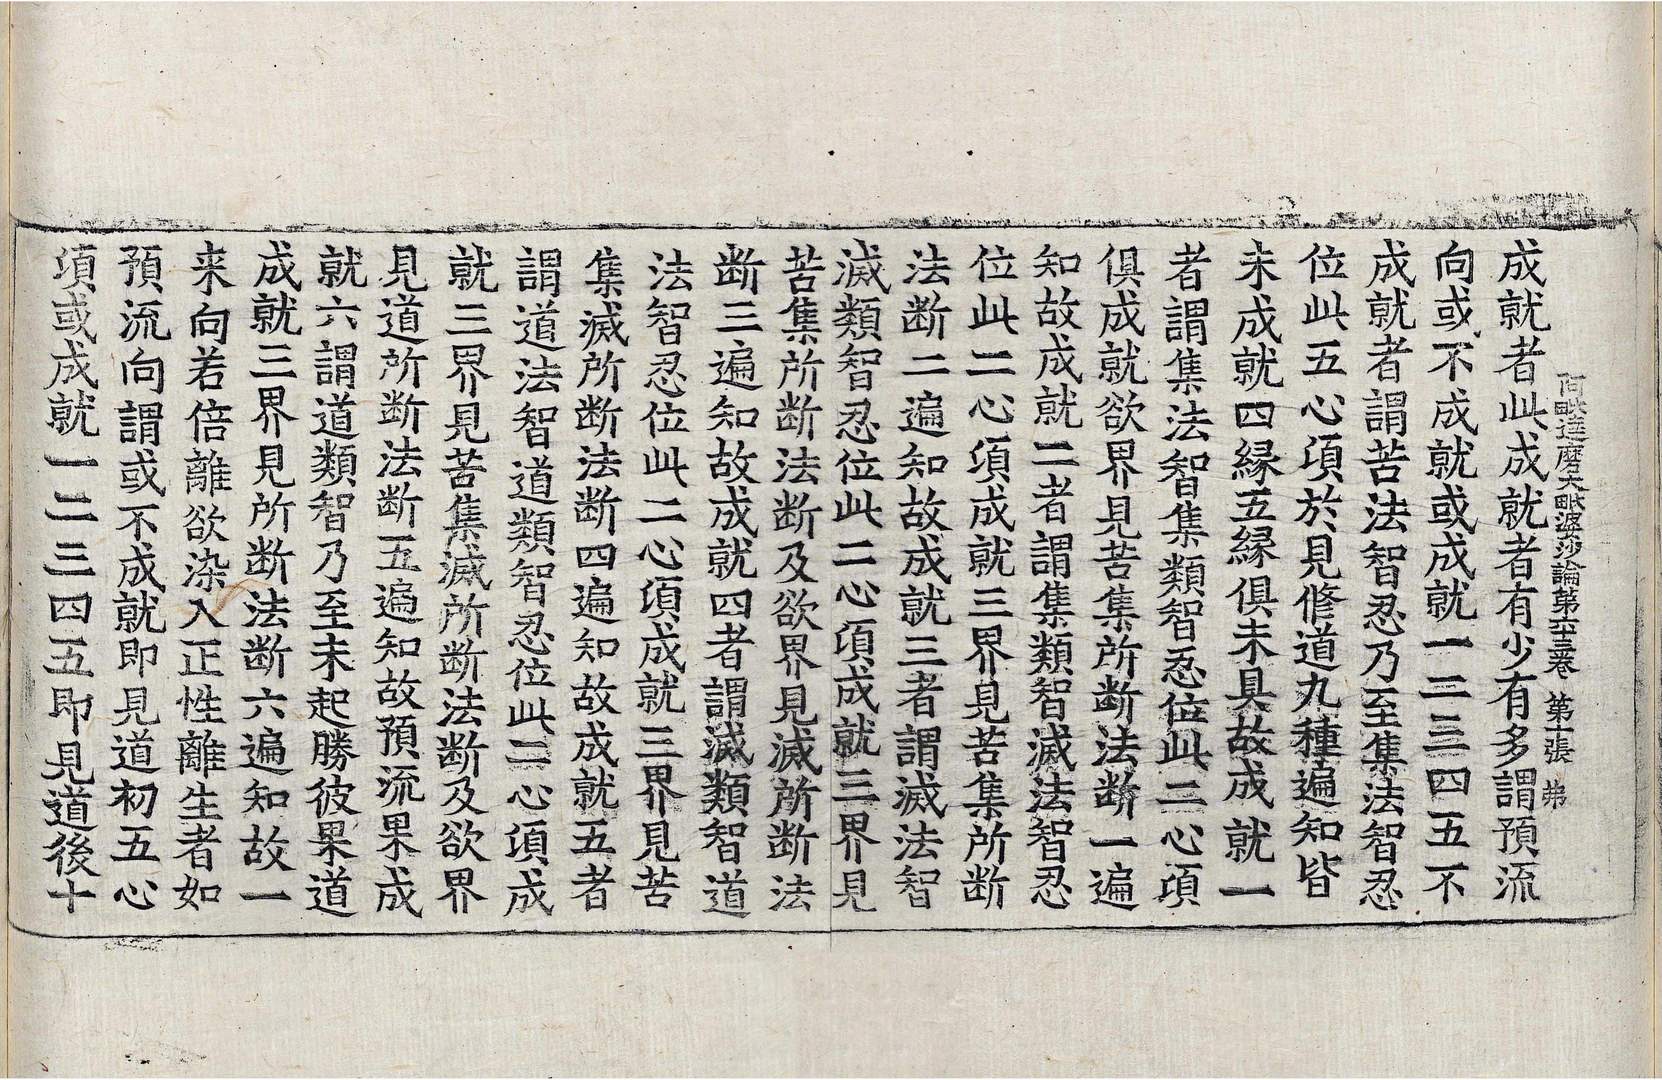 阿毗達磨大毗婆沙論第六十三卷 第十張 弗
成就者此成就者有少有多謂預流
向或不成就或成就一二三四五不
成就者謂苦法智忍乃至集法智忍
位此五心頃於見修道九種遍知皆
未成就四縁五縁俱未具故成就一
者謂集法智集類智忍位此二心頃
俱成就欲界見苦集所断法断一遍
知故成就二者謂集類智滅法智忍
位此二心頃成就三界見苦集所断
法断二遍知故成就三者謂滅法智
滅類智忍位此二心頃成就三界見
苦集所断法断及欲界見滅所断法
断三遍知故成就四者謂滅類智道
法智忍位此二心頃成就三界見苦
集滅所断法断四遍知故成就五者
謂道法智道類智忍位此二心頃成
就三界見苦集滅所断法断及欲界
見道所断法断五遍知故預流果成
就六謂道類智乃至未起勝彼果道
成就三界見所断法断六遍知故一
来向若倍離欲染入正性離生者如
預流向謂或不成就即見道初五心
頃或成就一二三四五即見道後十